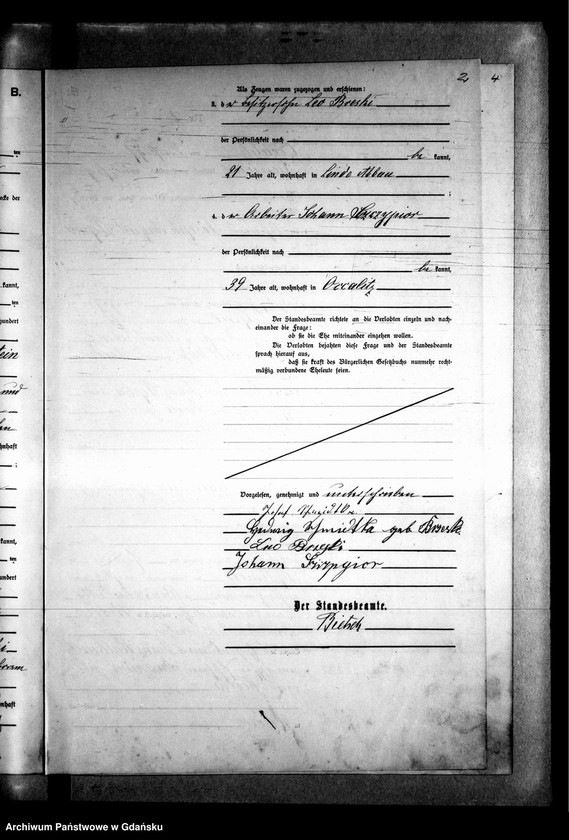 B.
2
4
Als Zeugen waren zugezogen und erschienen:
3. der Besitzersohn Leo Breski
der Persönlichkeit nach
be kannt,
21 Jahre alt, wohnhaft in Linde Abbau
;
4. der Arbeiter Johann Szczypior
der Persönlichkeit nach
be kannt,
39 Jahre alt, wohnhaft in Occalitz
Der Standesbeamte richtete an die Verlobten einzeln und nach-
einander die Frage:
ob sie die Ehe miteinander eingehen wollen.
Die Verlobten bejahten diese Frage und der Standesbeamte
sprach hierauf aus,
daß sie kraft des Bürgerlichen Gesetzbuchs nunmehr recht-
mäßig verbundene Eheleute seien.
Vorgelesen, genehmigt und unterschrieben
Josef Schmidtka
Hedwig Schmidtka geb Breski
Leo Breski
Johann Szczypior
Der Standesbeamte.
Bietsch
Archiwum Państwowe w Gdańsku